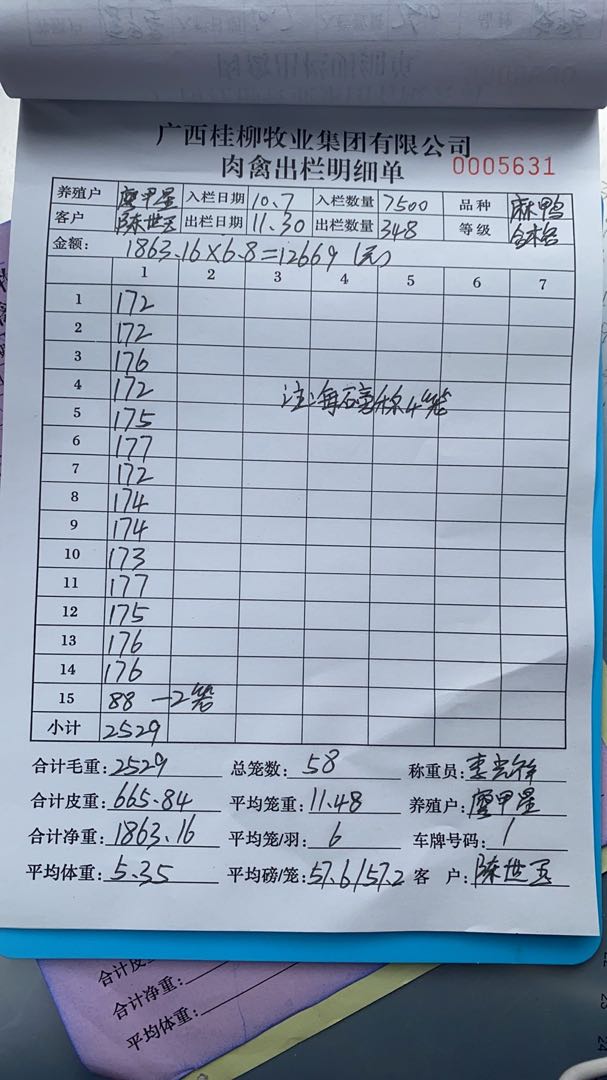 广西桂柳牧业集团有限公司
肉禽出栏明细单 0005631
养殖户 廖甲星 入栏日期 10.7 入栏数量 7500 品种 麻鸭
客户 陈世玉 出栏日期 11.30 出栏数量 348 等级
金额: 1863.16×6.8=12669(元)
1 2 3 4 5 6 7
1 172
2 172
3 176
4 172 注:每磅称4笼
5 175
6 177
7 172
8 174
9 174
10 173
11 177
12 175
13 176
14 176
15 88 —2笼
小计 2529
合计毛重: 2529 总笼数: 58 称重员:
合计皮重: 665.84 平均笼重: 11.48 养殖户: 廖甲星
合计净重: 1863.16 平均笼/羽: 6 车牌号码: 1
平均体重: 5.35 平均磅/笼: 57.6/57.2 客 户: 陈世玉
合计净重:
平均体重: